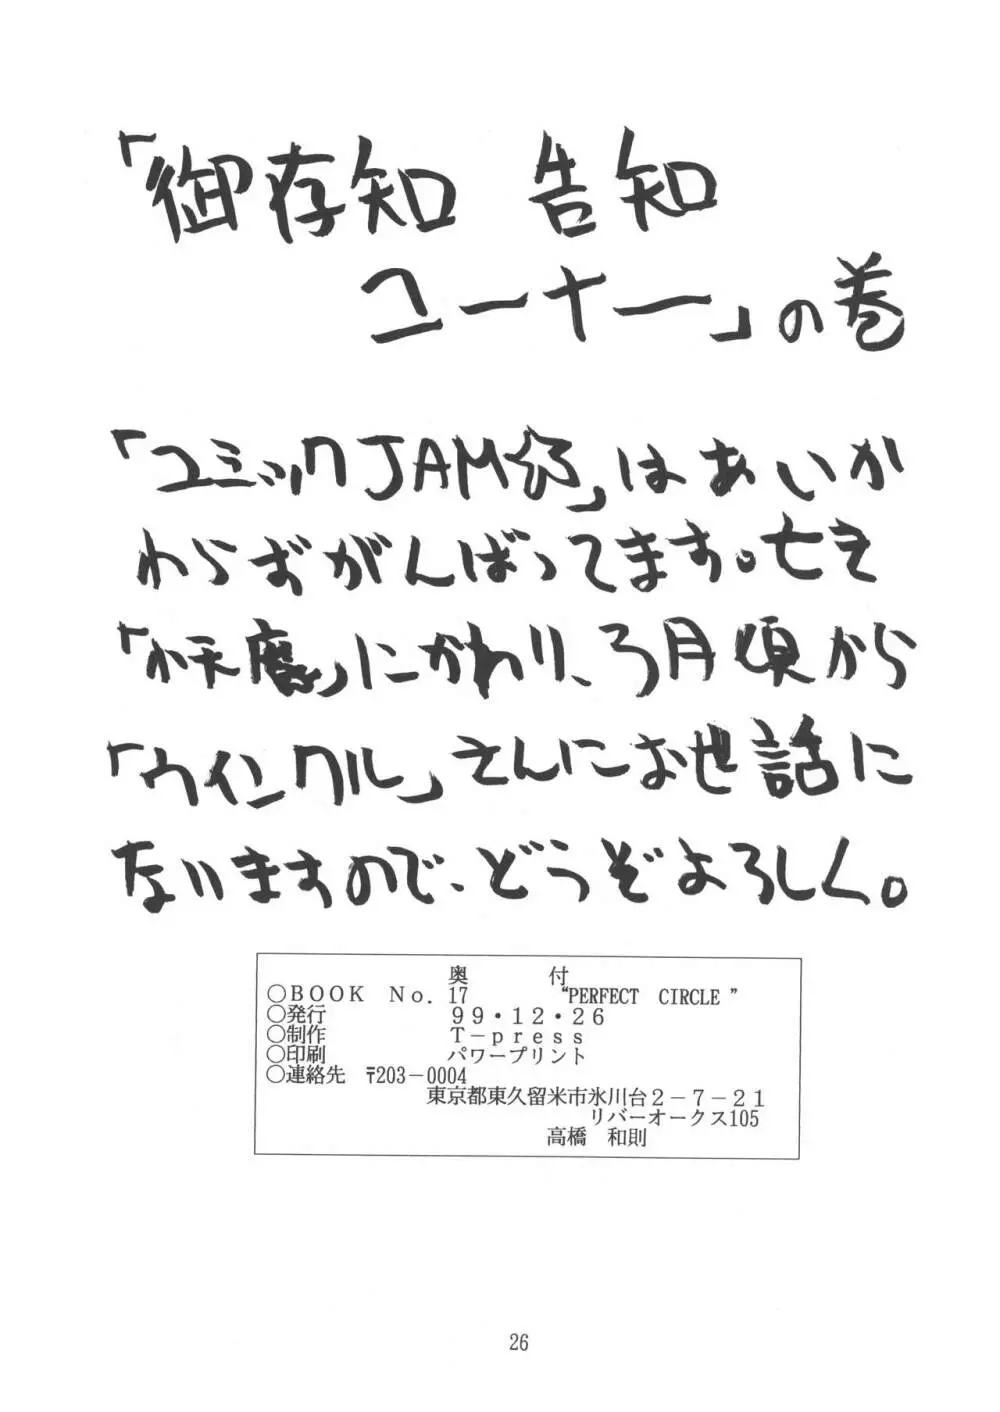 「御存知 告知
コーナー」の巻
「コミックJAM☆」はあいか
わらずがんばってます。亡き
「小天魔」にかわり、3月頃から
「ウインクル」さんにお世話に
ないますので、どうぞよろしく。
奥　付
○ＢＯＯＫ　Ｎｏ．17　“PERFECT　CIRCLE”
○発行　９９・１２・２６
○制作　Ｔ－ｐｒｅｓｓ
○印刷　パワープリント
○連絡先　〒203－0004
東京都東久留米市氷川台２－７－２１
リバーオークス105
高橋　和則
26